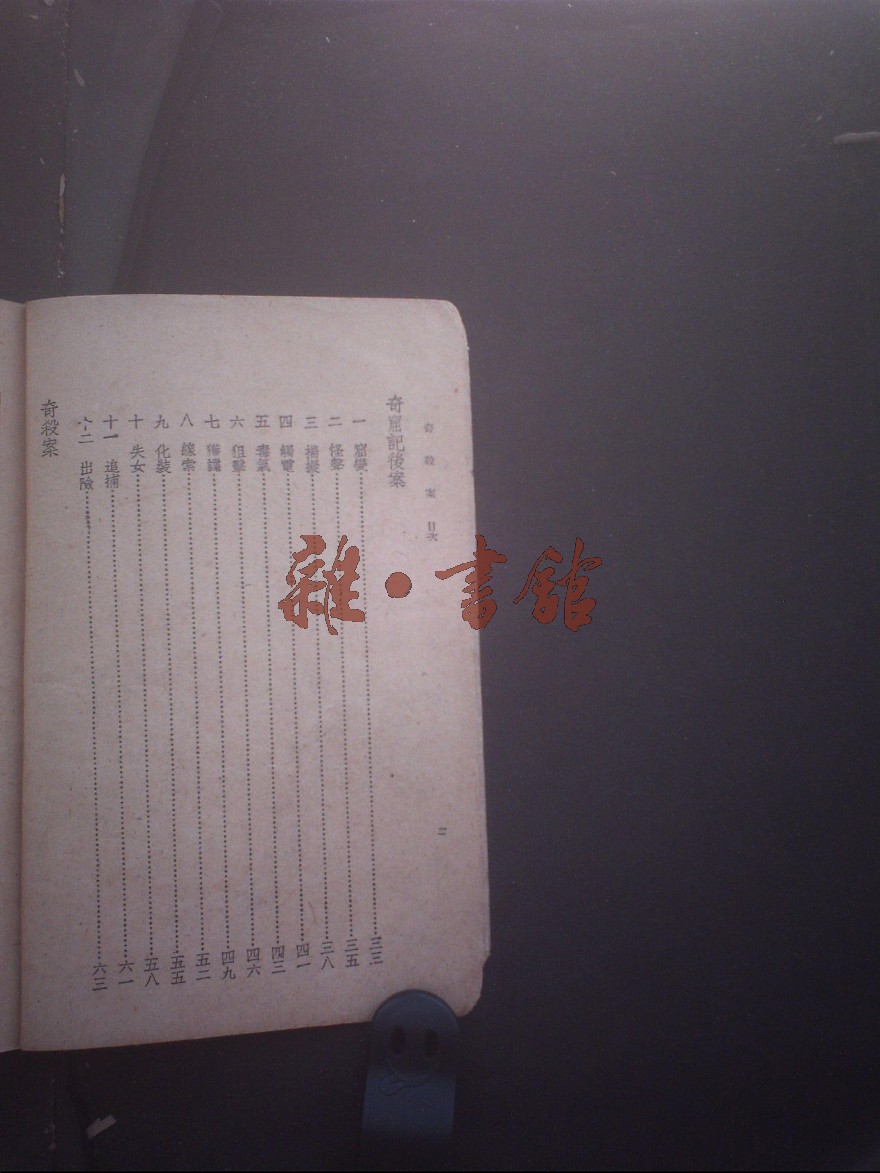 奇殺案 目次
二
奇窟記後案
一 窟變 三三
二 怪聲 三五
三 三八
四 觸電 四一
五 毒氣 四三
六 狙擊 四六
七 獲諜 四九
八 線索 五二
九 化裝 五五
十 失女 五八
十一 追捕 六一
十二 出險 六三
奇殺案
雜·書館